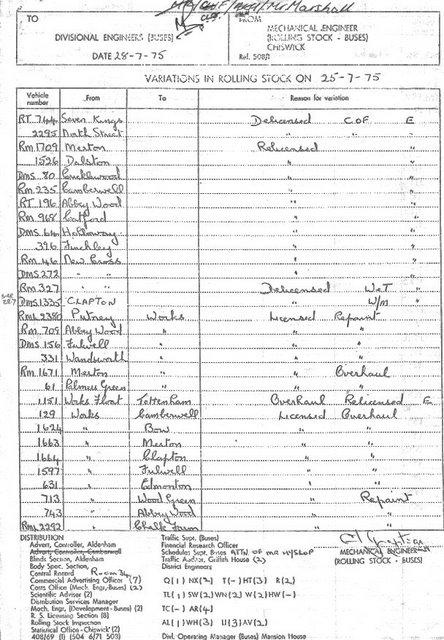 Marshall
TO
FROM
DIVISIONAL ENGINEERS (BUSES)
MECHANICAL ENGINEER
(ROLLING STOCK - BUSES)
CHISWICK
DATE 28-7-75
Ref. 508/1
VARIATIONS IN ROLLING STOCK ON 25-7-75
Vehicle number From To Reason for variation
RT 744 Seven Kings Delicensed C.O.F E
2295 North Street " " "
RM 1709 Merton Relicensed "
1526 Dalston " "
DMS 80 Cricklewood " "
RM 235 Camberwell " "
RT 196 Abbey Wood " "
RM 968 Catford " "
DMS 64 Holloway " "
396 Finchley " "
RM 46 New Cross " "
DMS 272 " " " "
RM 327 " " Delicensed W&T
DMS 1335 CLAPTON " W/M
RML 2380 Putney Works Licensed Repaint
RM 709 Abbey Wood " " "
DMS 156 Fulwell " " "
331 Wandsworth " " "
RM 1671 Merton " " Overhaul
61 Palmers Green " " "
1151 Works Float Tottenham Overhaul Relicensed E
129 Works Camberwell Licensed Overhaul
1624 " Bow " "
1663 " Merton " "
1664 " Clapton " "
1597 " Fulwell " "
631 " Edmonton " "
713 " Wood Green " Repaint
743 " Abbey Wood " "
RML 2292 " Chalk Farm " "
DISTRIBUTION
Advert. Controller, Aldenham
Advert. Controller, Camberwell
Blinds Section, Aldenham
Body Spec. Section,
Central Record
Commercial Advertising Officer (7)
Costs Office (Mech. Engr., Buses) (2)
Scientific Adviser (2)
Distribution Services Manager
Mech. Engr. (Development - Buses) (2)
R. S. Licensing Section (8)
Rolling Stock Inspection
Statistical Office - Chiswick (2)
408/69 (1) (504 6/71 503)
Traffic Supt. (Buses)
Financial Research Officer
Schedules Supt. Buses ATTN OF MR
Traffic Auditor, Griffith House (2)
District Engineers
Q(1) NX(2) T(-) HT(3) R(2)
TL(1) SW(2) WN(2) W(2) HW(-)
TC(-) AR(4)
AL(1) WH(3) U(3) AV(2)
Divl. Operating Manager (Buses) Mansion House
MECHANICAL ENGINEER
(ROLLING STOCK - BUSES)